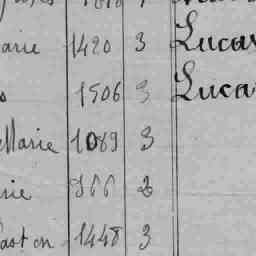 arie 1420 3 Lucas
1506 3 Luca
Marie 1089 3
rie 966 2
aston 1448 3